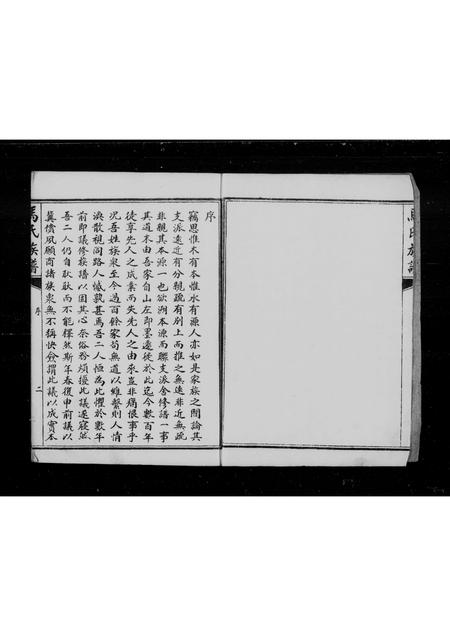 序
竊思惟木有本惟水有源人亦如是家族之間論其
支派遠近有分親疏有别上而推之無遠非近無疏
非親其本源一也欲溯本源而聯支派舍修譜一事
其道末由吾家自山左即墨遷徙於此迄今數百年
徒享先人之成業而失先人之由來豈非痛恨事乎
況吾姓族衆至今過百餘家苟無道以維繫則人情
渙散視同路人憾孰甚焉吾二人恒為此懼於數年
前即議修族譜以固其心奈俗務頻擾此議遂寢然
吾二人仍自耿耿而不能釋然斯年春復申前議以
冀償夙願商諸族衆無不稱快僉謂此議以成實本
馬氏族譜
序
二
馬氏族譜